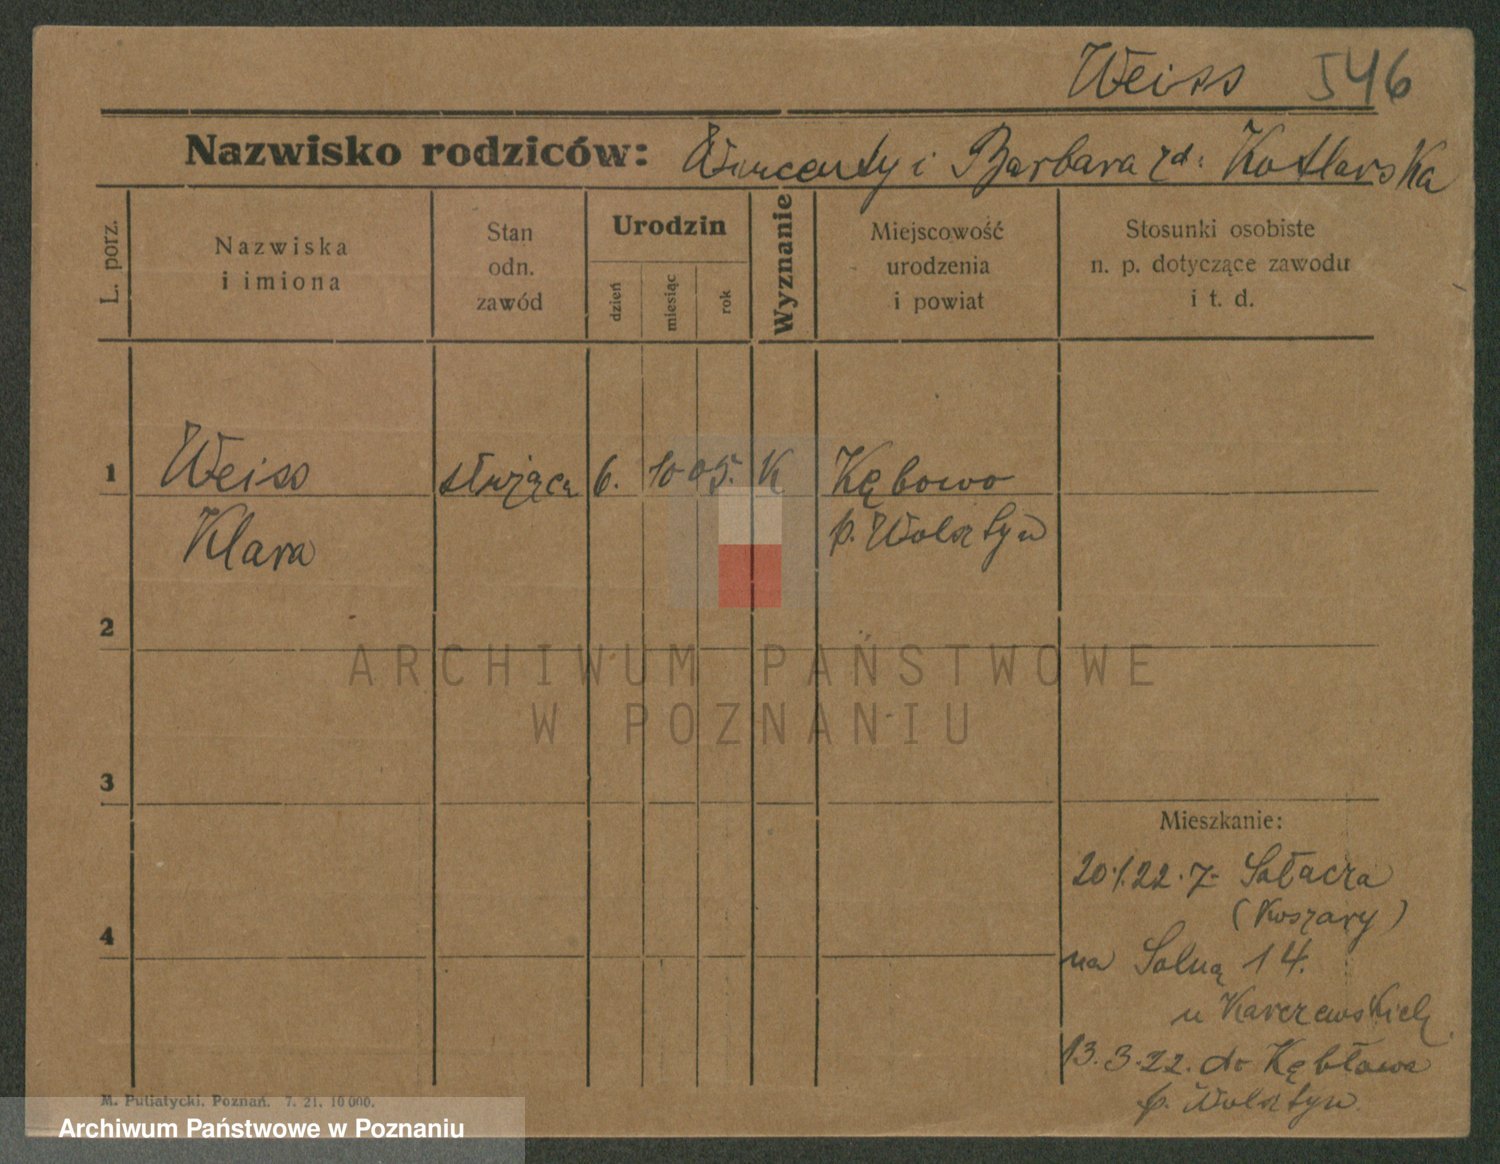 Weiss 546
Nazwisko rodziców: Wincenty i Barbara zd. Kotlarska
L. porz.
Nazwiska
i imiona
Stan
odn.
zawód
Urodzin
dzień
miesiąc
rok
Wyznanie
Miejscowość
urodzenia
i powiat
Stosunki osobiste
n. p. dotyczące zawodu
i t. d.
1 Weiss służąca 6. 10 05. K Kębowo
Klara p. Wolsztyn
2
ARCHIWUM PAŃSTWOWE
W POZNANIU
3
Mieszkanie:
20.1.22. z Sołacza
(Koszary)
4
na Solną 14.
u Karczewskich
13.3.22. do Kębłowa
p. Wolsztyn
M. Putiatycki, Poznań. 7. 21. 10000.
Archiwum Państwowe w Poznaniu